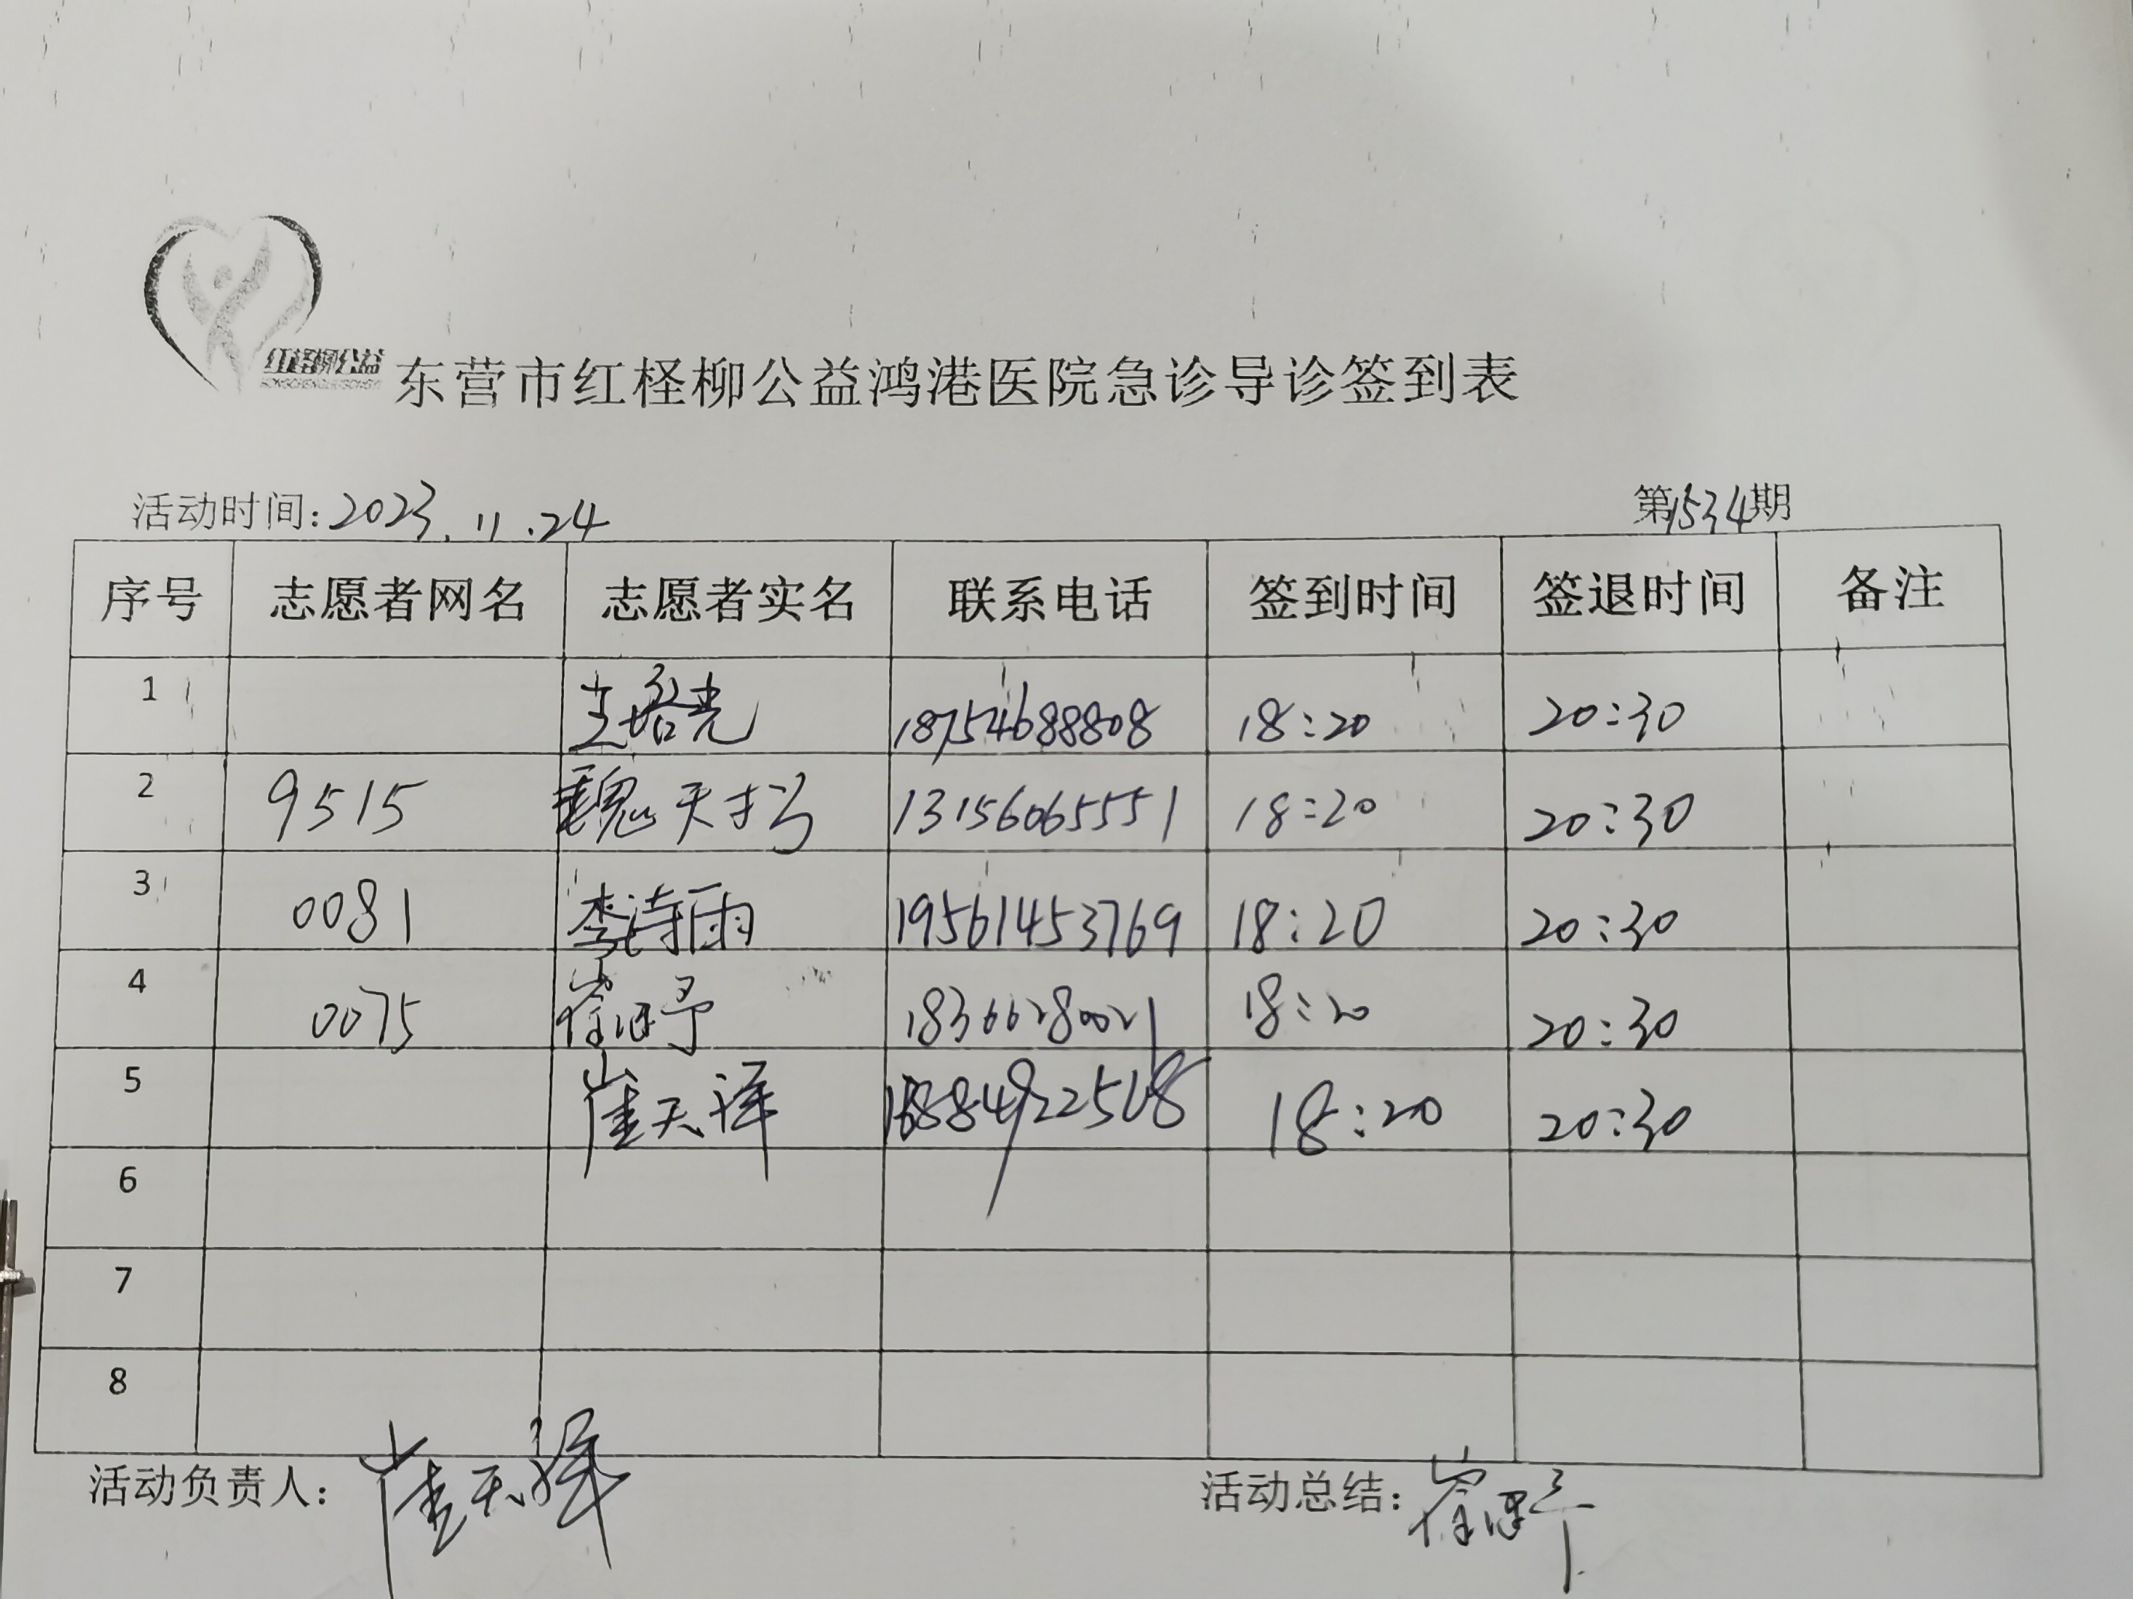 红柽柳公益
东营市红柽柳公益鸿港医院急诊导诊签到表
活动时间:2023.11.24 第1534期
序号 志愿者网名 志愿者实名 联系电话 签到时间 签退时间 备注
1 18754688808 18:20 20:30
2 9515 魏天 13156065551 18:20 20:30
3 0081 李诗雨 19561453769 18:20 20:30
4 0075 18366280021 18:20 20:30
5 崔天泽 18:20 20:30
6
7
8
活动负责人: 崔天泽 活动总结: